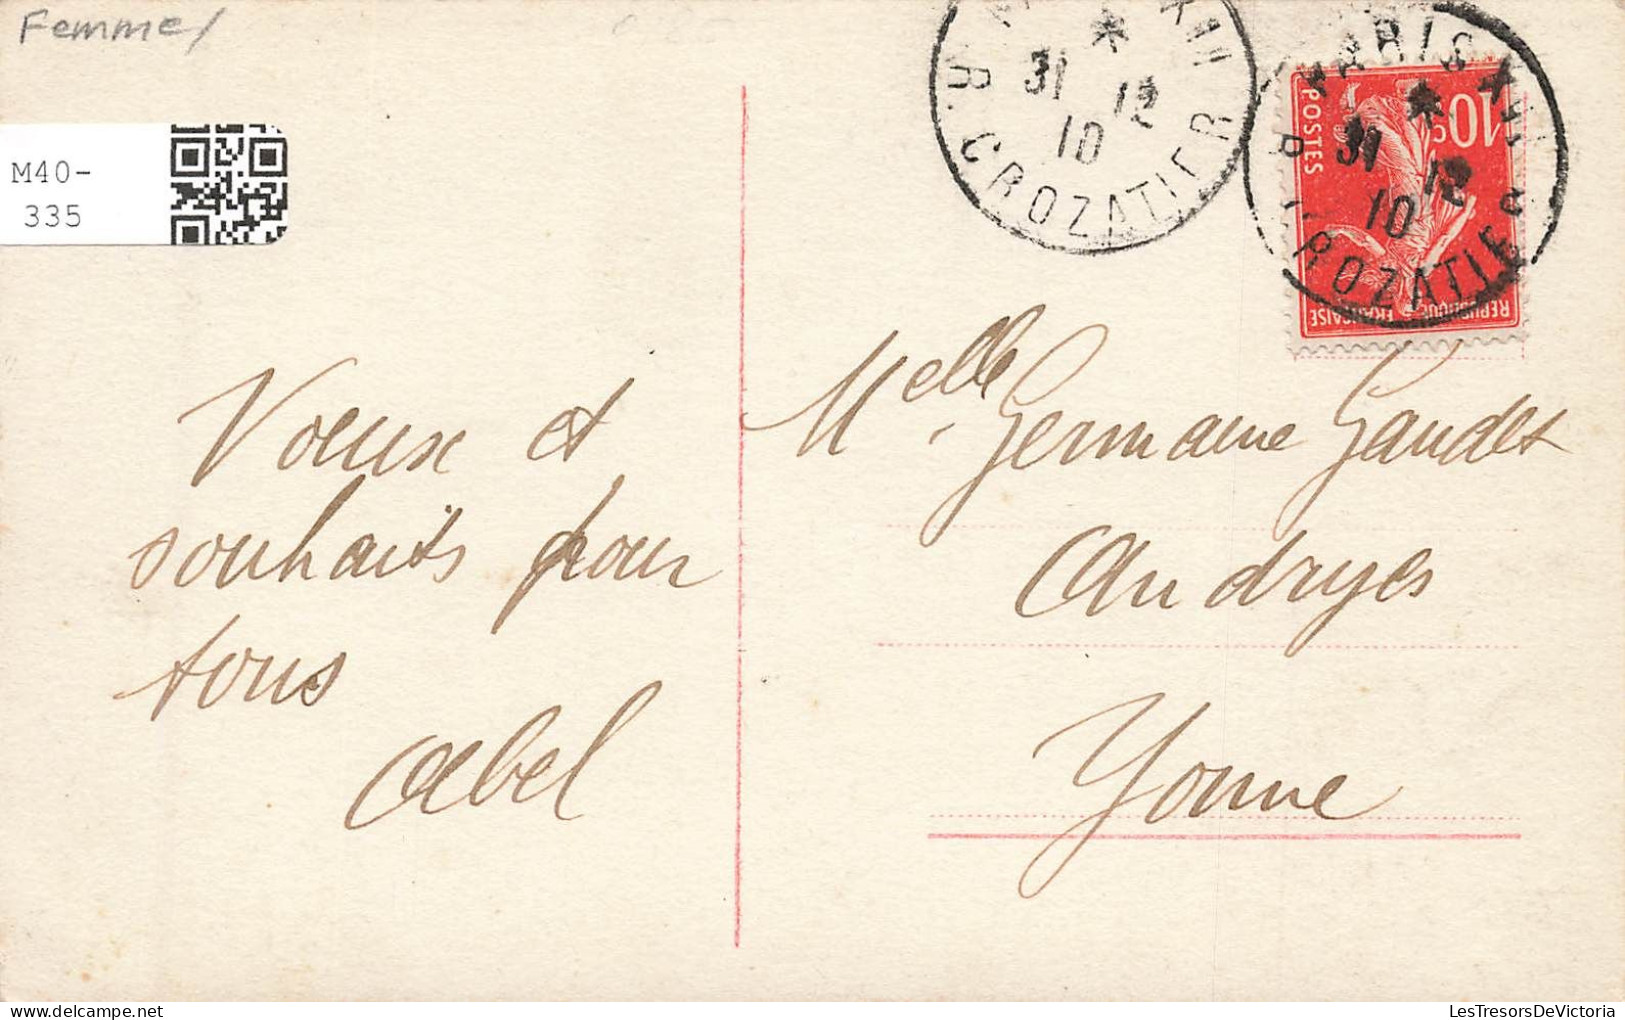 Femme
M40-
335
R. CROZATIER
31 12
10
PARIS XII
R. CROZATIER
31 12
10
10c
POSTES
REPUBLIQUE FRANÇAISE
Voeux et
souhaits pour
tous
Abel
Melle Germaine Gaudet
Andryes
Yonne
LesTresorsDeVictoria